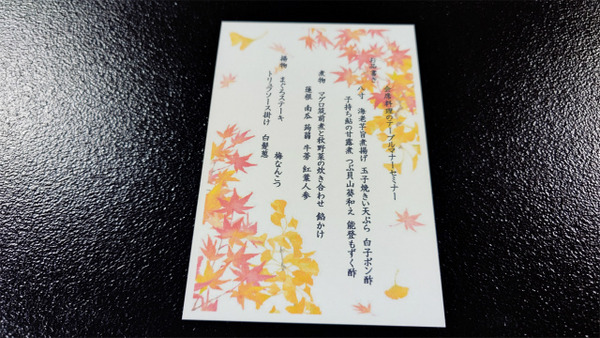 お品書き
会席料理のテーブルマナーセミナー
八寸 海老芋旨煮揚げ 玉子焼き いか天ぷら 白子ポン酢
子持ち鮎の甘露煮 つぶ貝山葵和え 能登もずく酢
煮物 マグロ筑前煮と秋野菜の炊き合わせ 餡かけ
蓮根 南瓜 蒟蒻 牛蒡 紅葉人参
揚物 まぐろステーキ 梅なんこう
トリュフソース掛け 白髪葱